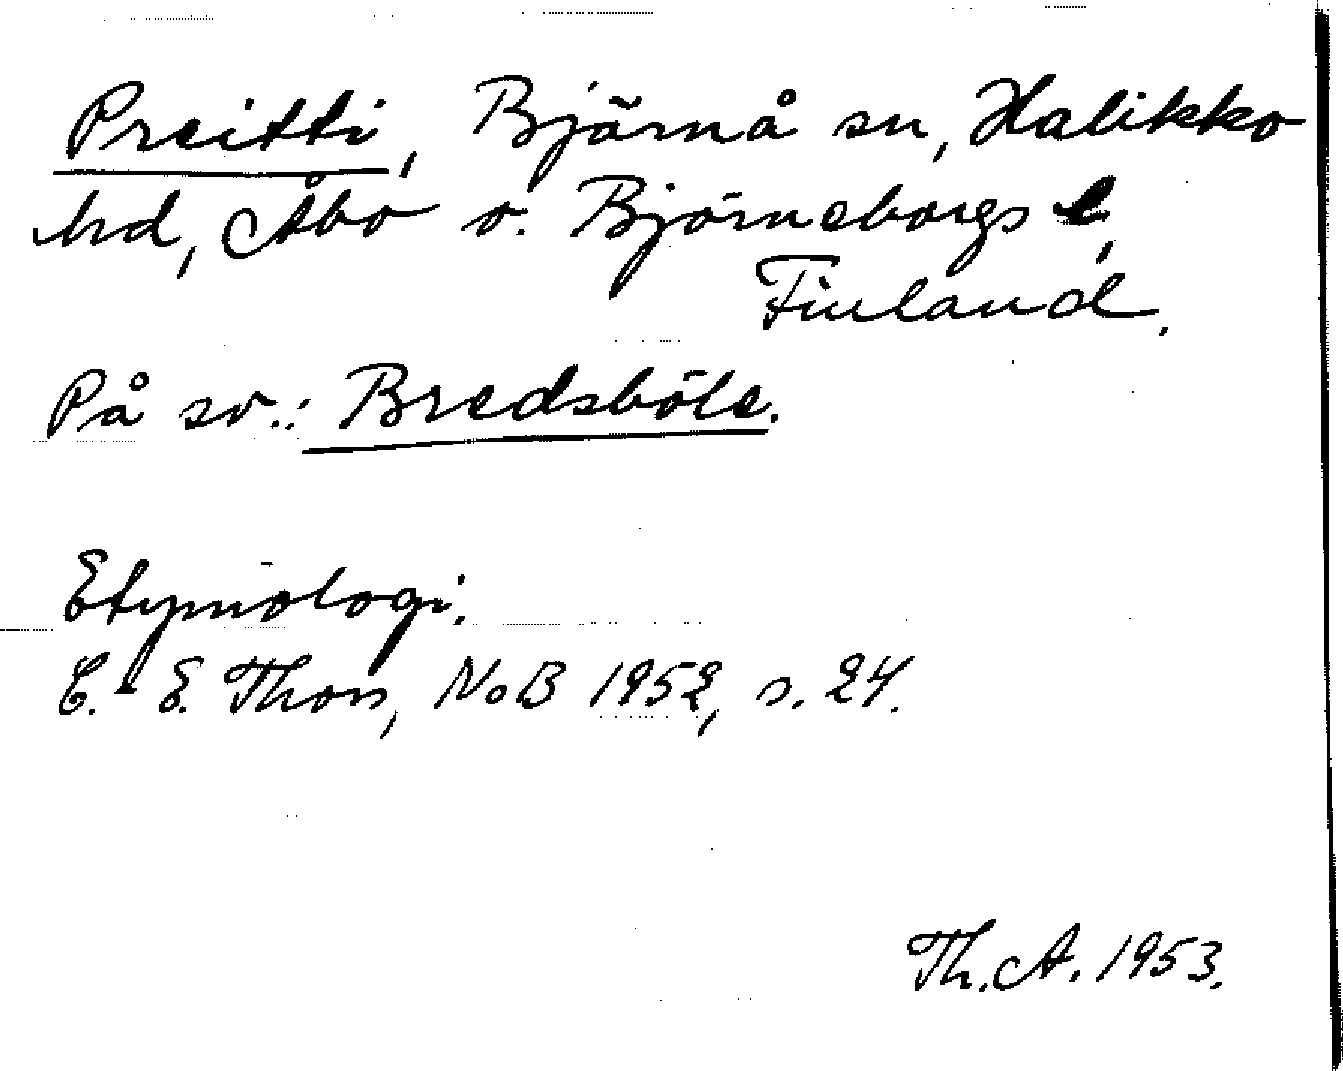 Preitti, Bjärnå sn, Halikko
hd, Åbo o. Björneborgs l,
Finland.
På sv.: Bredsböle.
Etymologi.
C. E. Thors, NoB 1952, s. 24.
Th. A. 1953.